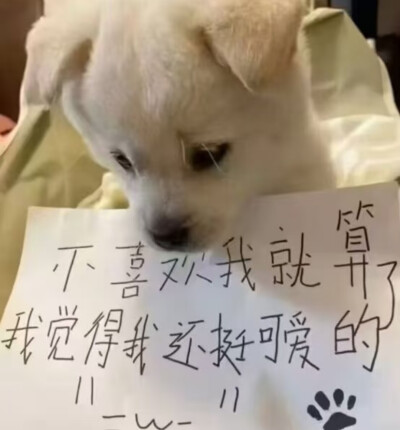 不喜欢我就算了
我觉得我还挺可爱的
"-w-"